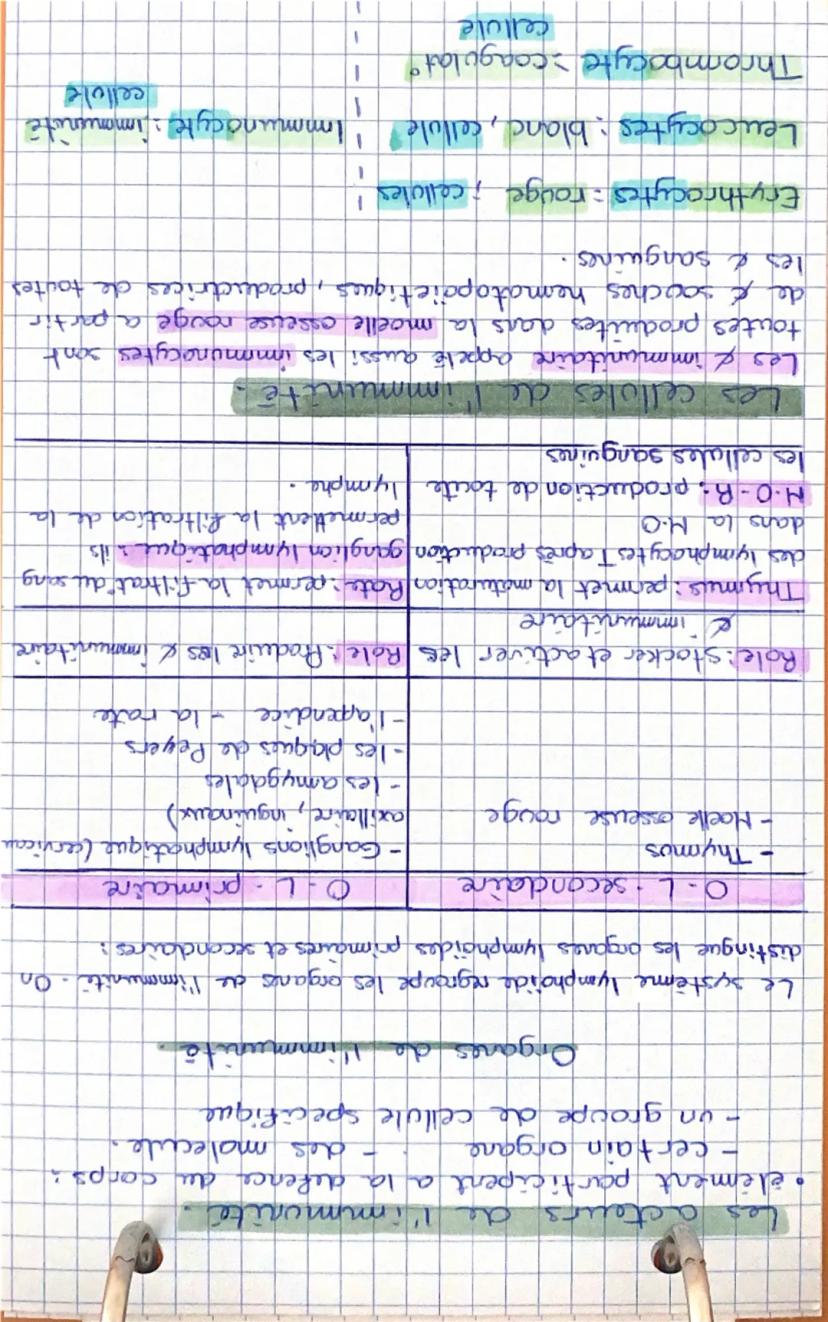 Les acteurs de l'immunité.
• élément participent a la defence du corps :
- certain organe - des molecule.
- un groupe de cellule specifique
Organes de l'immunité.
Le système lymphoïde regroupe les organes de l'immunité. On
distingue les organes lymphoïdes primaires et secondaires :
O.L. secondaire
- Thymus
- Moelle osseuse rouge
Role : stocker et activer les
¢ immunitaire
Thymus : permet la maturation
des lymphocytes T après production
dans la M.O
M.O.R : production de toute
les cellules sanguines
O.L. primaire
- Ganglions lymphatique (cervicau
axillaire, inguinaux)
- les amygdales
- les plaques de Peyers
- l'apendice - la rate
Role : Produire les ¢ immunitaire
Rate : permet la filtrat° du sang
ganglion lymphatique : ils
permettent la filtration de la
lymphe.
Les cellules de l'immunité.
Les ¢ immunitaire appelé aussi les immunocytes sont
toutes produites dans la moelle osseuse rouge a partir
de ¢ souches hematopoïetiques, productrices de toutes
les ¢ sanguines.
Erythrocytes : rouge ; cellules
Leucocytes : blanc, cellule
Thrombocyte : coagulat°
cellule
Immunocyte : immunité
cellule